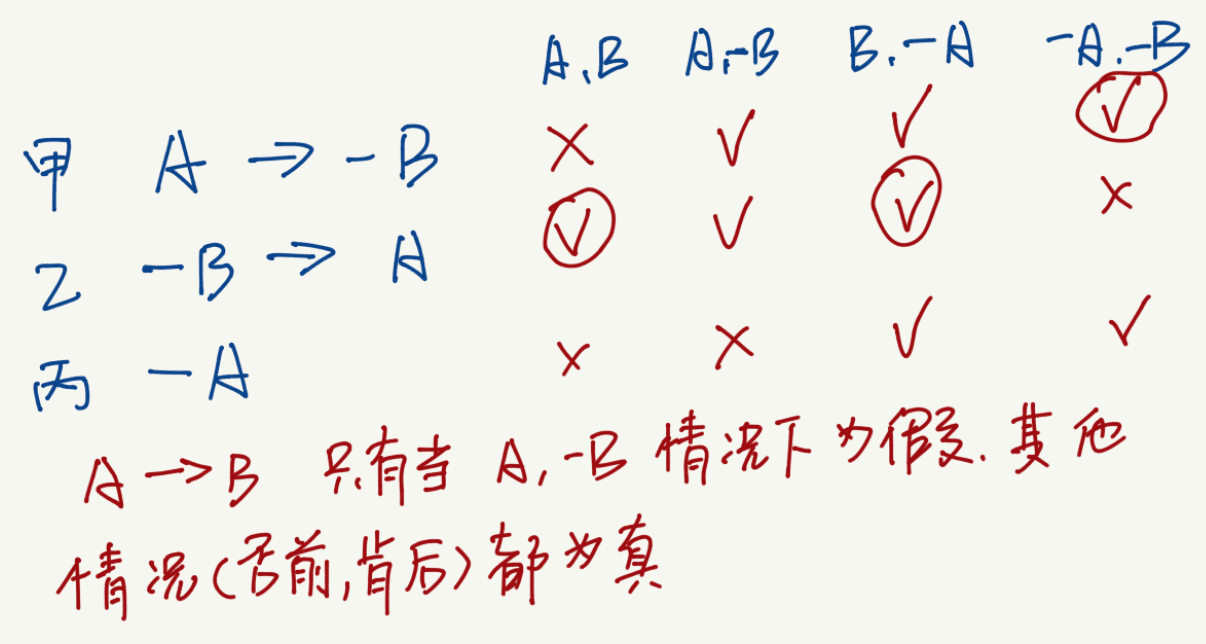 A,B A,-B B,-A -A,-B
甲 A → -B × ✓ ✓ ✓
乙 -B → A ✓ ✓ ✓ ×
丙 -A × × ✓ ✓
A → B 只有当 A,-B 情况下为假,其他
情况(否前,肯后)都为真